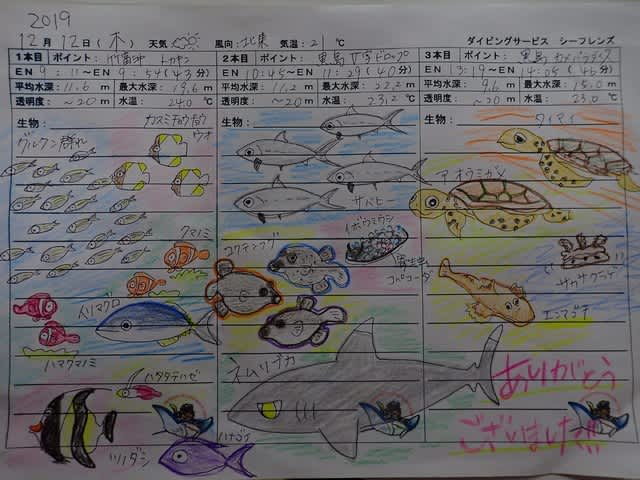 2019
12月12日(木) 天気 風向:北東 気温:21℃ ダイビングサービス シーフレンズ
1本目 ポイント:竹富沖 トカキン
EN 9:11〜EN 9:54(43分)
平均水深:11.6m 最大水深:19.6m
透明度:〜20m 水温:24.0℃
生物: カスミチョウチョウウオ
グルクン群れ
クマノミ
イソマグロ
ハマクマノミ
ハタタテハゼ
ツノダシ
ハナゴイ
2本目 ポイント:黒島 V字ドロップ
EN 10:45〜EN 11:29(40分)
平均水深:11.2m 最大水深:22.2m
透明度:〜20m 水温:23.2℃
生物:
サバヒー
イボウミウシ
コクテンフグ
寄生虫
コペポーダ
ネムリブカ
3本目 ポイント:黒島
EN 13:19〜EN 14:05(46分)
平均水深:9.6m 最大水深:15.0m
透明度:〜20m 水温:23.0℃
生物: タイマイ
アオウミガメ
サカサクラゲ
エンマゴチ
ありがとう
ございました!!!